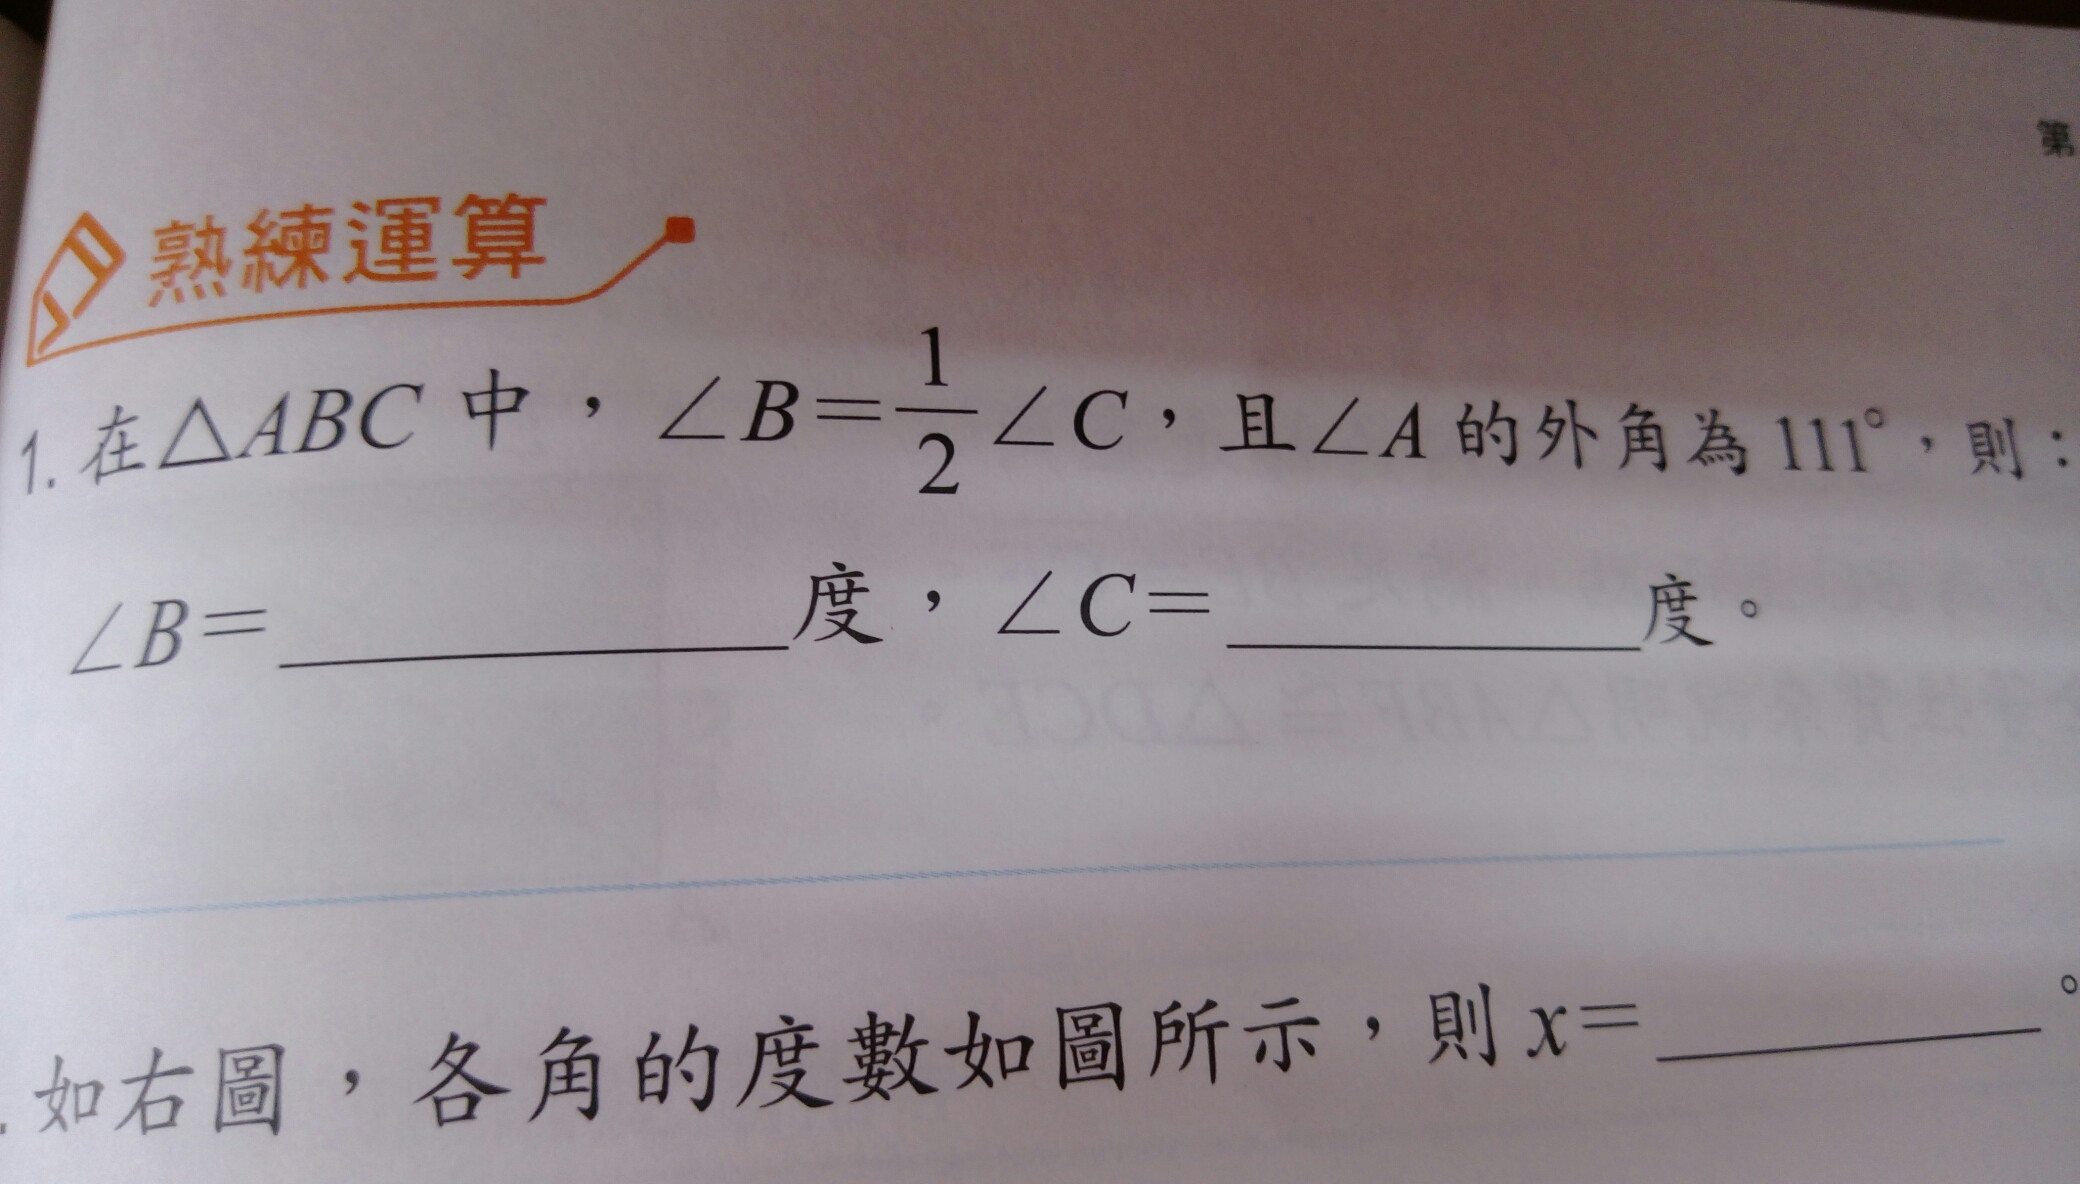 第
熟練運算
1. 在△ABC 中，∠B=\frac{1}{2}∠C，且∠A 的外角為 111°，則：
∠B=__________度，∠C=__________度。
. 如右圖，各角的度數如圖所示，則 x=__________。